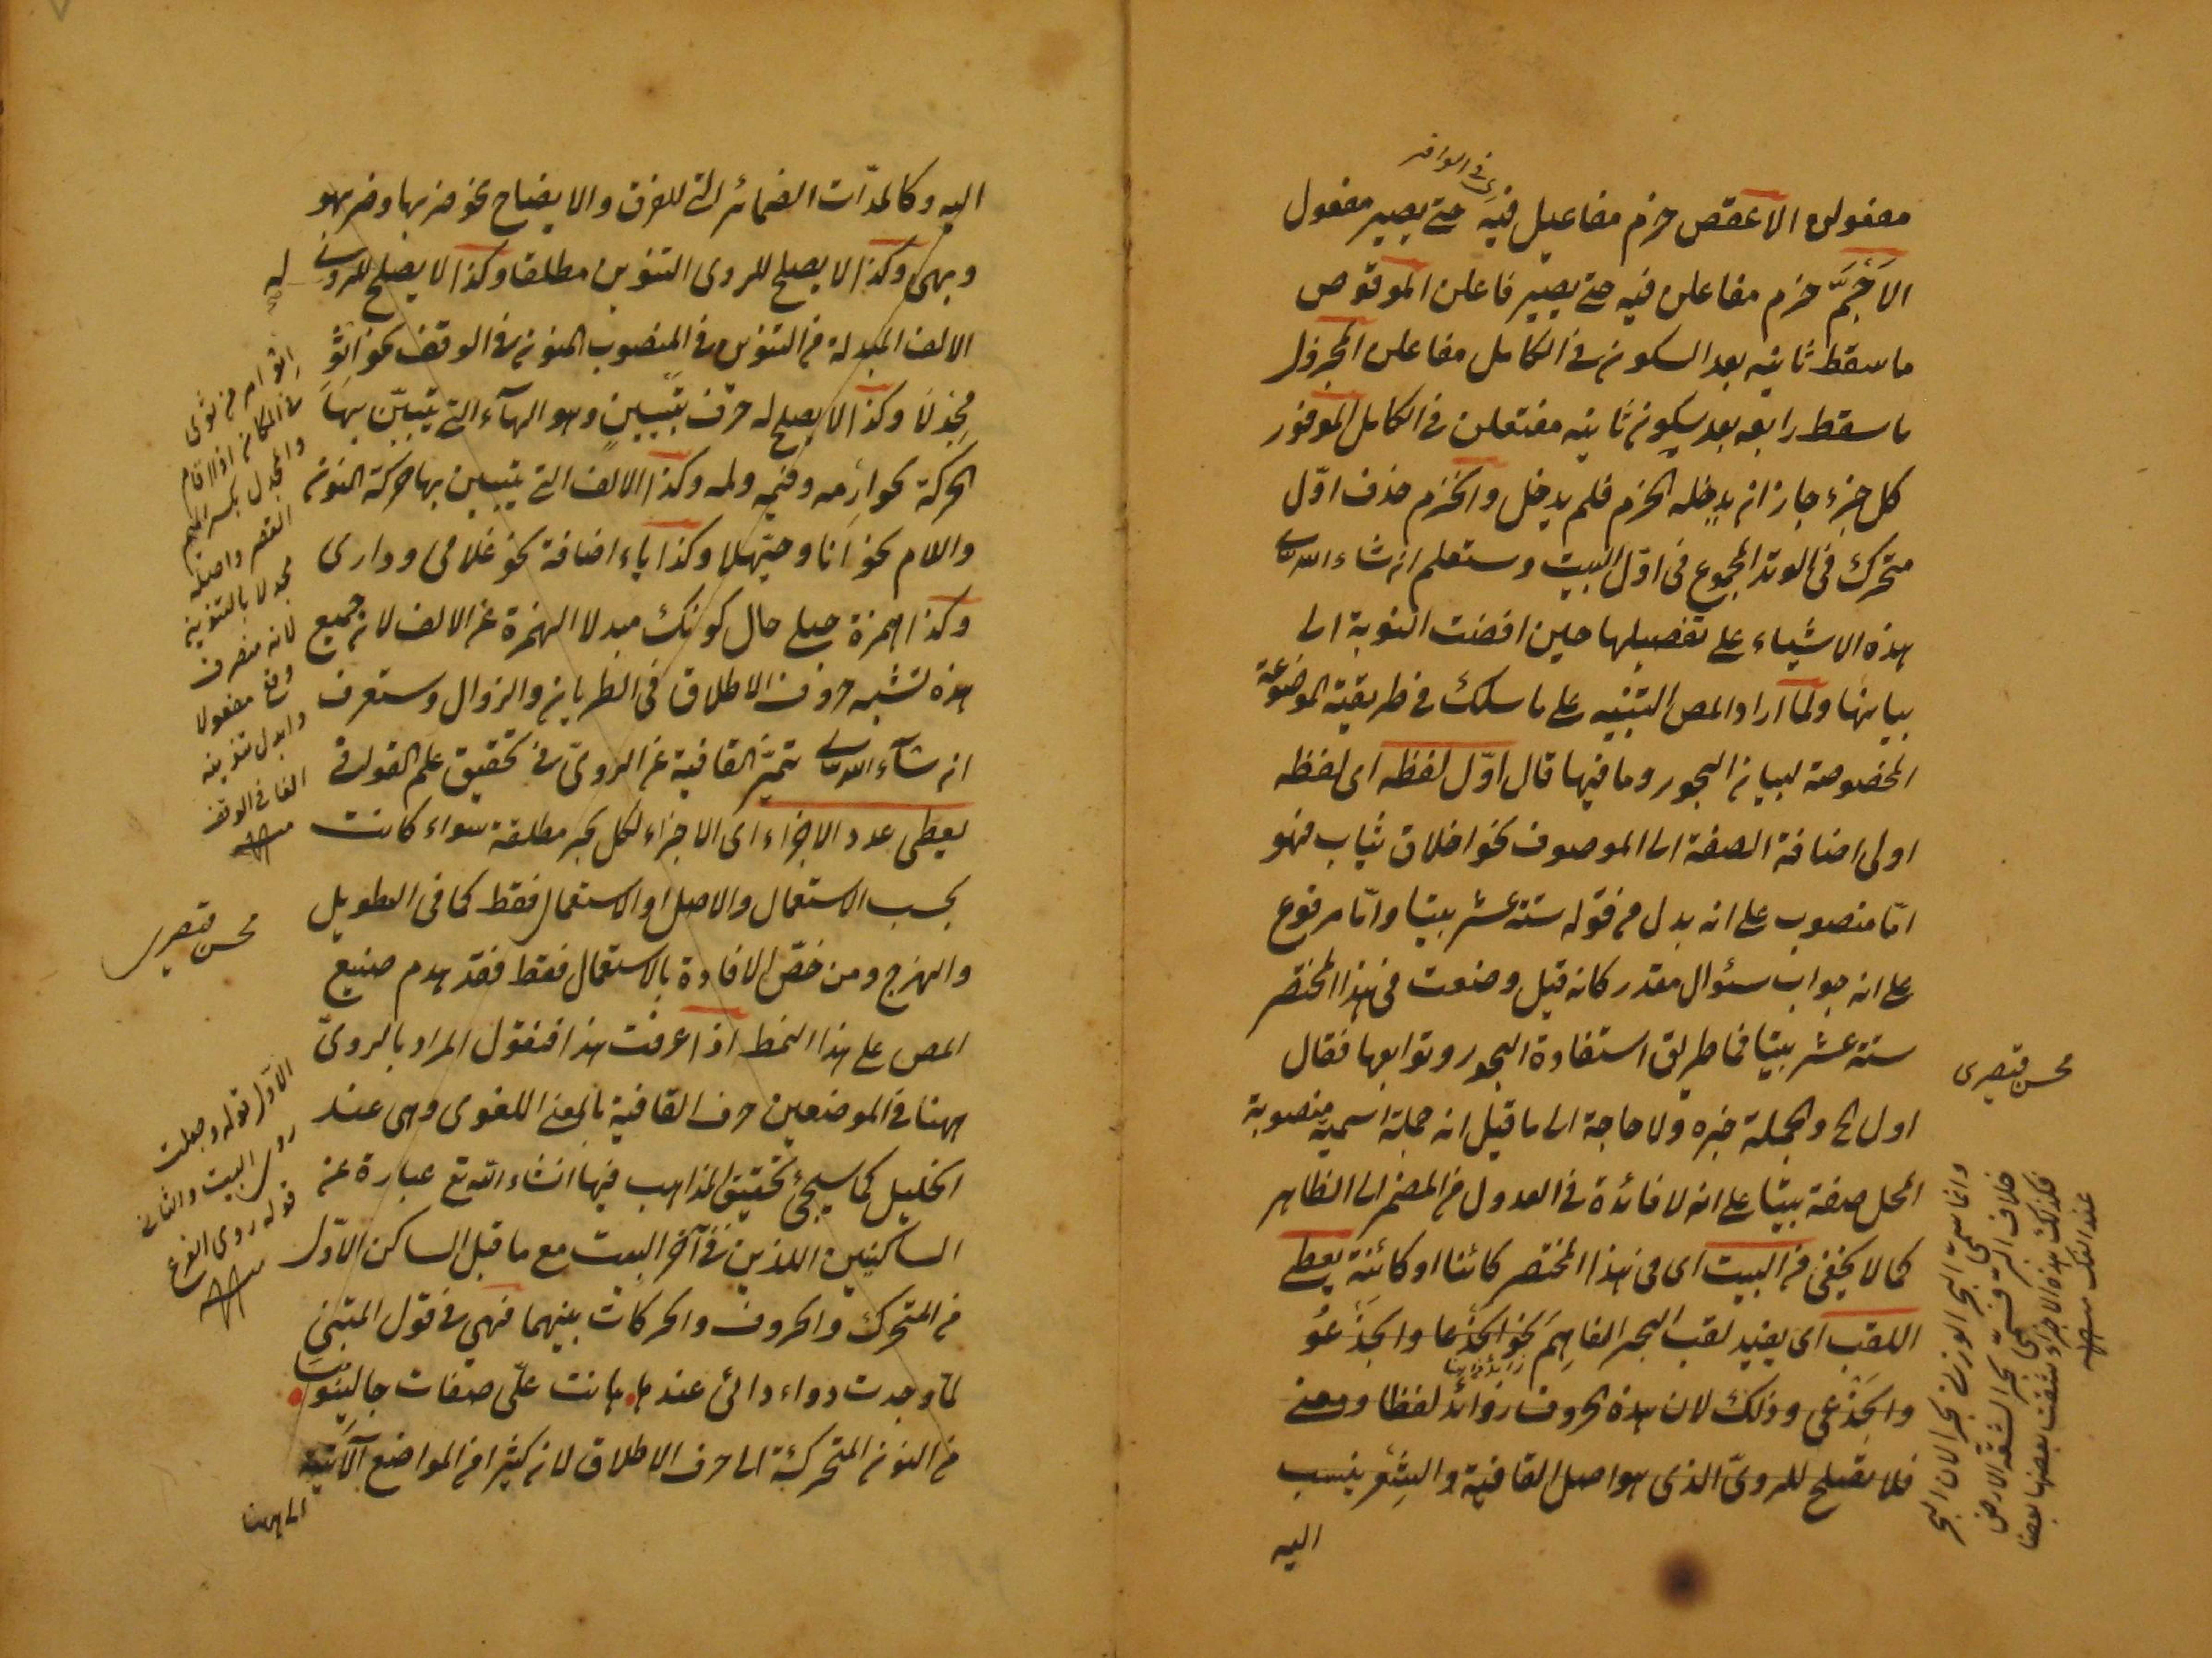 فى الوافر
مفعولن الاعقص خرم مفاعيل فيه حتى يصير مفعول
الاَجَمَّ خرم مفاعلن فيه حتى يصير فاعلن الموقوص
ما سقط ثانيه بعد السكون فى الكامل مفاعلن المجزول
ما سقط رابعه بعد سكون ثانيه مفتعلن فى الكامل الموفور
كل جزء جاز ان يدخله الخرم فلم يدخل والخرم حذف اوّل
متحرك فى الوتد المجموع فى اوّل البيت وستعلم ان شاء الله
هذه الاشياء على تفصيلها حين افضت النوبة الى
بيانها ولما اراد المص التنبيه على ما سلك فى طريقية الموضوعة
المخصوصة لبيان البحور وما فيها قال اوّل لفظه اى لفظه
اولى اضافة الصفة الى الموصوف نحو اخلاق ثياب فهو
امّا منصوب على انه بدل من قوله ستة عشر بيتا وامّا مرفوع
على انه جواب سئوال مقدر كانه قيل وضعت فى هذا المختصر
ستة عشر بيتا فما طريق استفادة البحور وتوابعها فقال
اول الخ والجملة خبره ولا حاجة الى ما قيل انه جملة اسمية منصوبة
المحل صفة بيتا على انه لا فائدة فى العدول من المضمر الى الظاهر
كما لا يخفى من البيت اى من هذا المختصر كائنا او كائنة يعطى
اللقب اى يفيد لقب البحر الفاهم نحو الجذعا والجذعو
والجذعى وذلك لان هذه الحروف زوائد لفظا ومعنى
فلا تصلح للروىّ الذى هو اصل القافية والشعر ينسب
اليه
محسن قيصرى
وانما سمى البحر الوزن بحرا لان البحر
خلاف البر سمى بحرا لشقه الارض
فكذلك هذه الاجزاء شقت بعضها بعضا
عند الفك منه
اليه وكالمدّات الضمائر التى للفرق والايضاح نحو ضربها وضربهو
وبهى وكذا لا يصلح للروى التنوين مطلقا وكذا لا يصلح للروى
الالف المبدلة من التنوين فى المنصوب المنون فى الوقف نحو اثو
مجدلا وكذا لا يصلح له حرف تبيين وهو الهاء التى يتبيّن بها
الحركة نحو ارمه وفيمه ولمه وكذا الالف التى يتبين بها حركة النون
واللام نحو انا وحيهلا وكذا ياء اضافة نحو غلامى ودارى
وكذا همزة حبلى حال كونك مبدلا الهمزة عن الالف لان جميع
هذه تشبه حروف الاطلاق فى الطريان والزوال وستعرف
ان شاء الله تميّز القافية عن الروىّ فى تحقيق علم القوافى
يعطى عدد الاجزاء اى الاجزاء لكل بحر مطلقة سواء كانت
بحسب الاستعمال والاصل او الاستعمال فقط كما فى الطويل
والهزج ومن خصّ الافادة بالاستعمال فقط فقد هدم صنيع
المص على هذا النمط اذا عرفت هذا فنقول المراد بالروىّ
ههنا فى الموضعين حرف القافية بالمعنى اللغوى وهى عند
الخليل كما سيجئ تحقيق المذاهب فيها انشاء الله تع عبارة عن
الساكنين اللذين فى آخر البيت مع ما قبل الساكن الاوّل
من المتحرك والحروف والحركات بينهما فهى فى قول المتنبى
لما وجدت دواء دائى عندها هانت علىّ صفات جالينوسا
من النون المتحركة الى حرف الاطلاق لان كثيرا من المواضع الآتية
الى هنا
اثو امر من ثوى
فى المكان اذا اقام
والمجدل بكسر الميم
القصر واصله
مجدلا بالتنوين
لانه منصرف
وقع مفعولا
وابدل تنوينه
الفا فى الوقف
منه
محسن قيصرى
الاوّل قوله وجعلت
روى البيت والثانى
قوله روى الفرع
منه